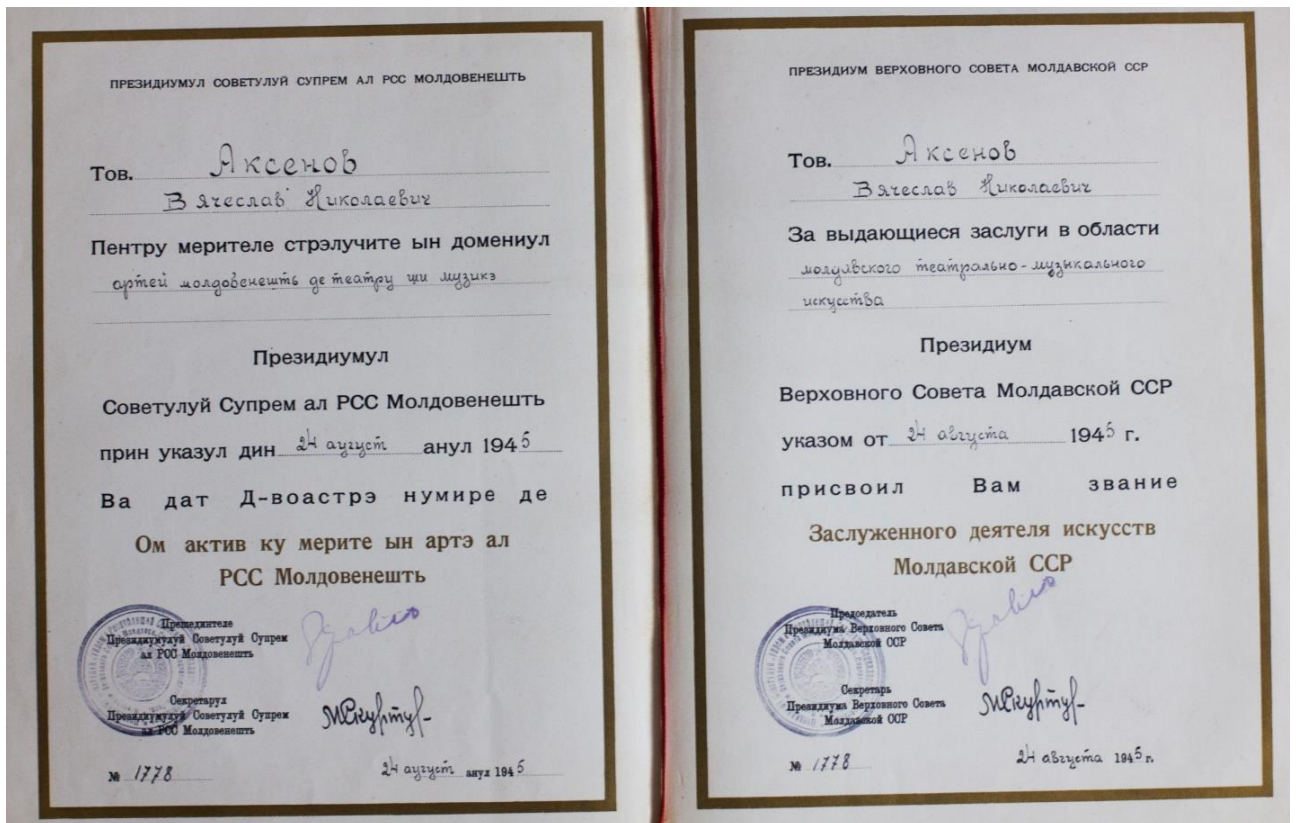 ПРЕЗИДИУМУЛ СОВЕТУЛУЙ СУПРЕМ АЛ РСС МОЛДОВЕНЕШТЬ
Тов. Аксенов
Вячеслав Николаевич
Пентру мерителе стрэлучите ын домениул
артей молдовенешть де театру ши музикэ
Президиумул
Советулуй Супрем ал РСС Молдовенешть
прин указул дин 24 аугуст анул 1945
Ва дат Д-воастрэ нумире де
Ом актив ку мерите ын артэ ал
РСС Молдовенешть
Прешединтеле
Президиумулуй Советулуй Супрем
ал РСС Молдовенешть
Секретарул
Президиумулуй Советулуй Супрем
ал РСС Молдовенешть
МСкуртул
№ 1778
24 аугуст анул 1945
ПРЕЗИДИУМ ВЕРХОВНОГО СОВЕТА МОЛДАВСКОЙ ССР
Тов. Аксенов
Вячеслав Николаевич
За выдающиеся заслуги в области
молдавского театрально-музыкального
искусства
Президиум
Верховного Совета Молдавской ССР
указом от 24 августа 1945 г.
присвоил Вам звание
Заслуженного деятеля искусств
Молдавской ССР
Председатель
Президиума Верховного Совета
Молдавской ССР
Секретарь
Президиума Верховного Совета
Молдавской ССР
МСкуртул
№ 1778
24 августа 1945 г.